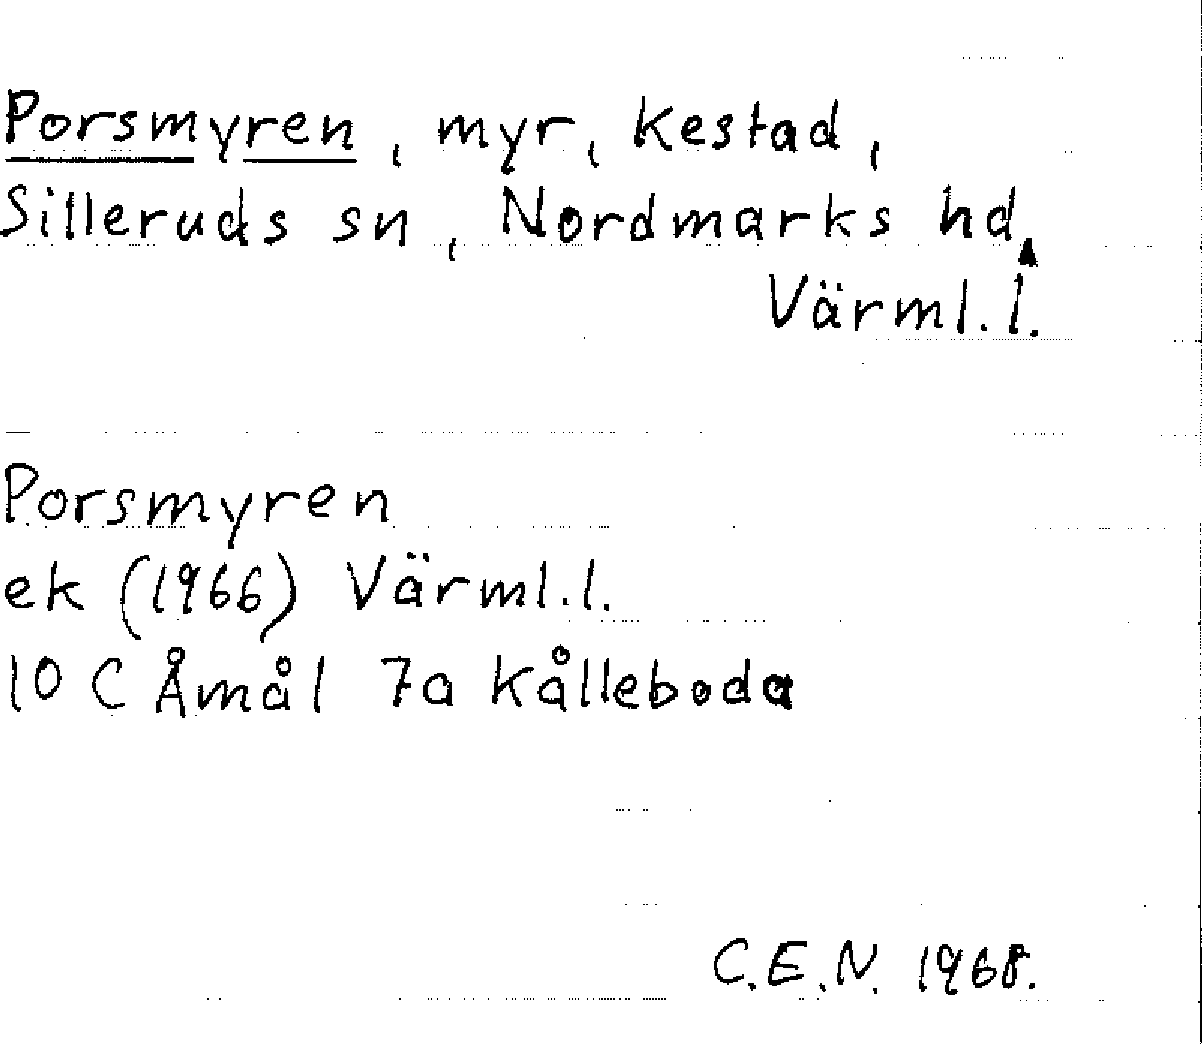 Porsmyren, myr, Kestad,
Silleruds sn, Nordmarks hd,
Värml. l.
Porsmyren
ek (1966) Värml. l.
10 C Åmål 7a Kålleboda
C.E.N. 1968.